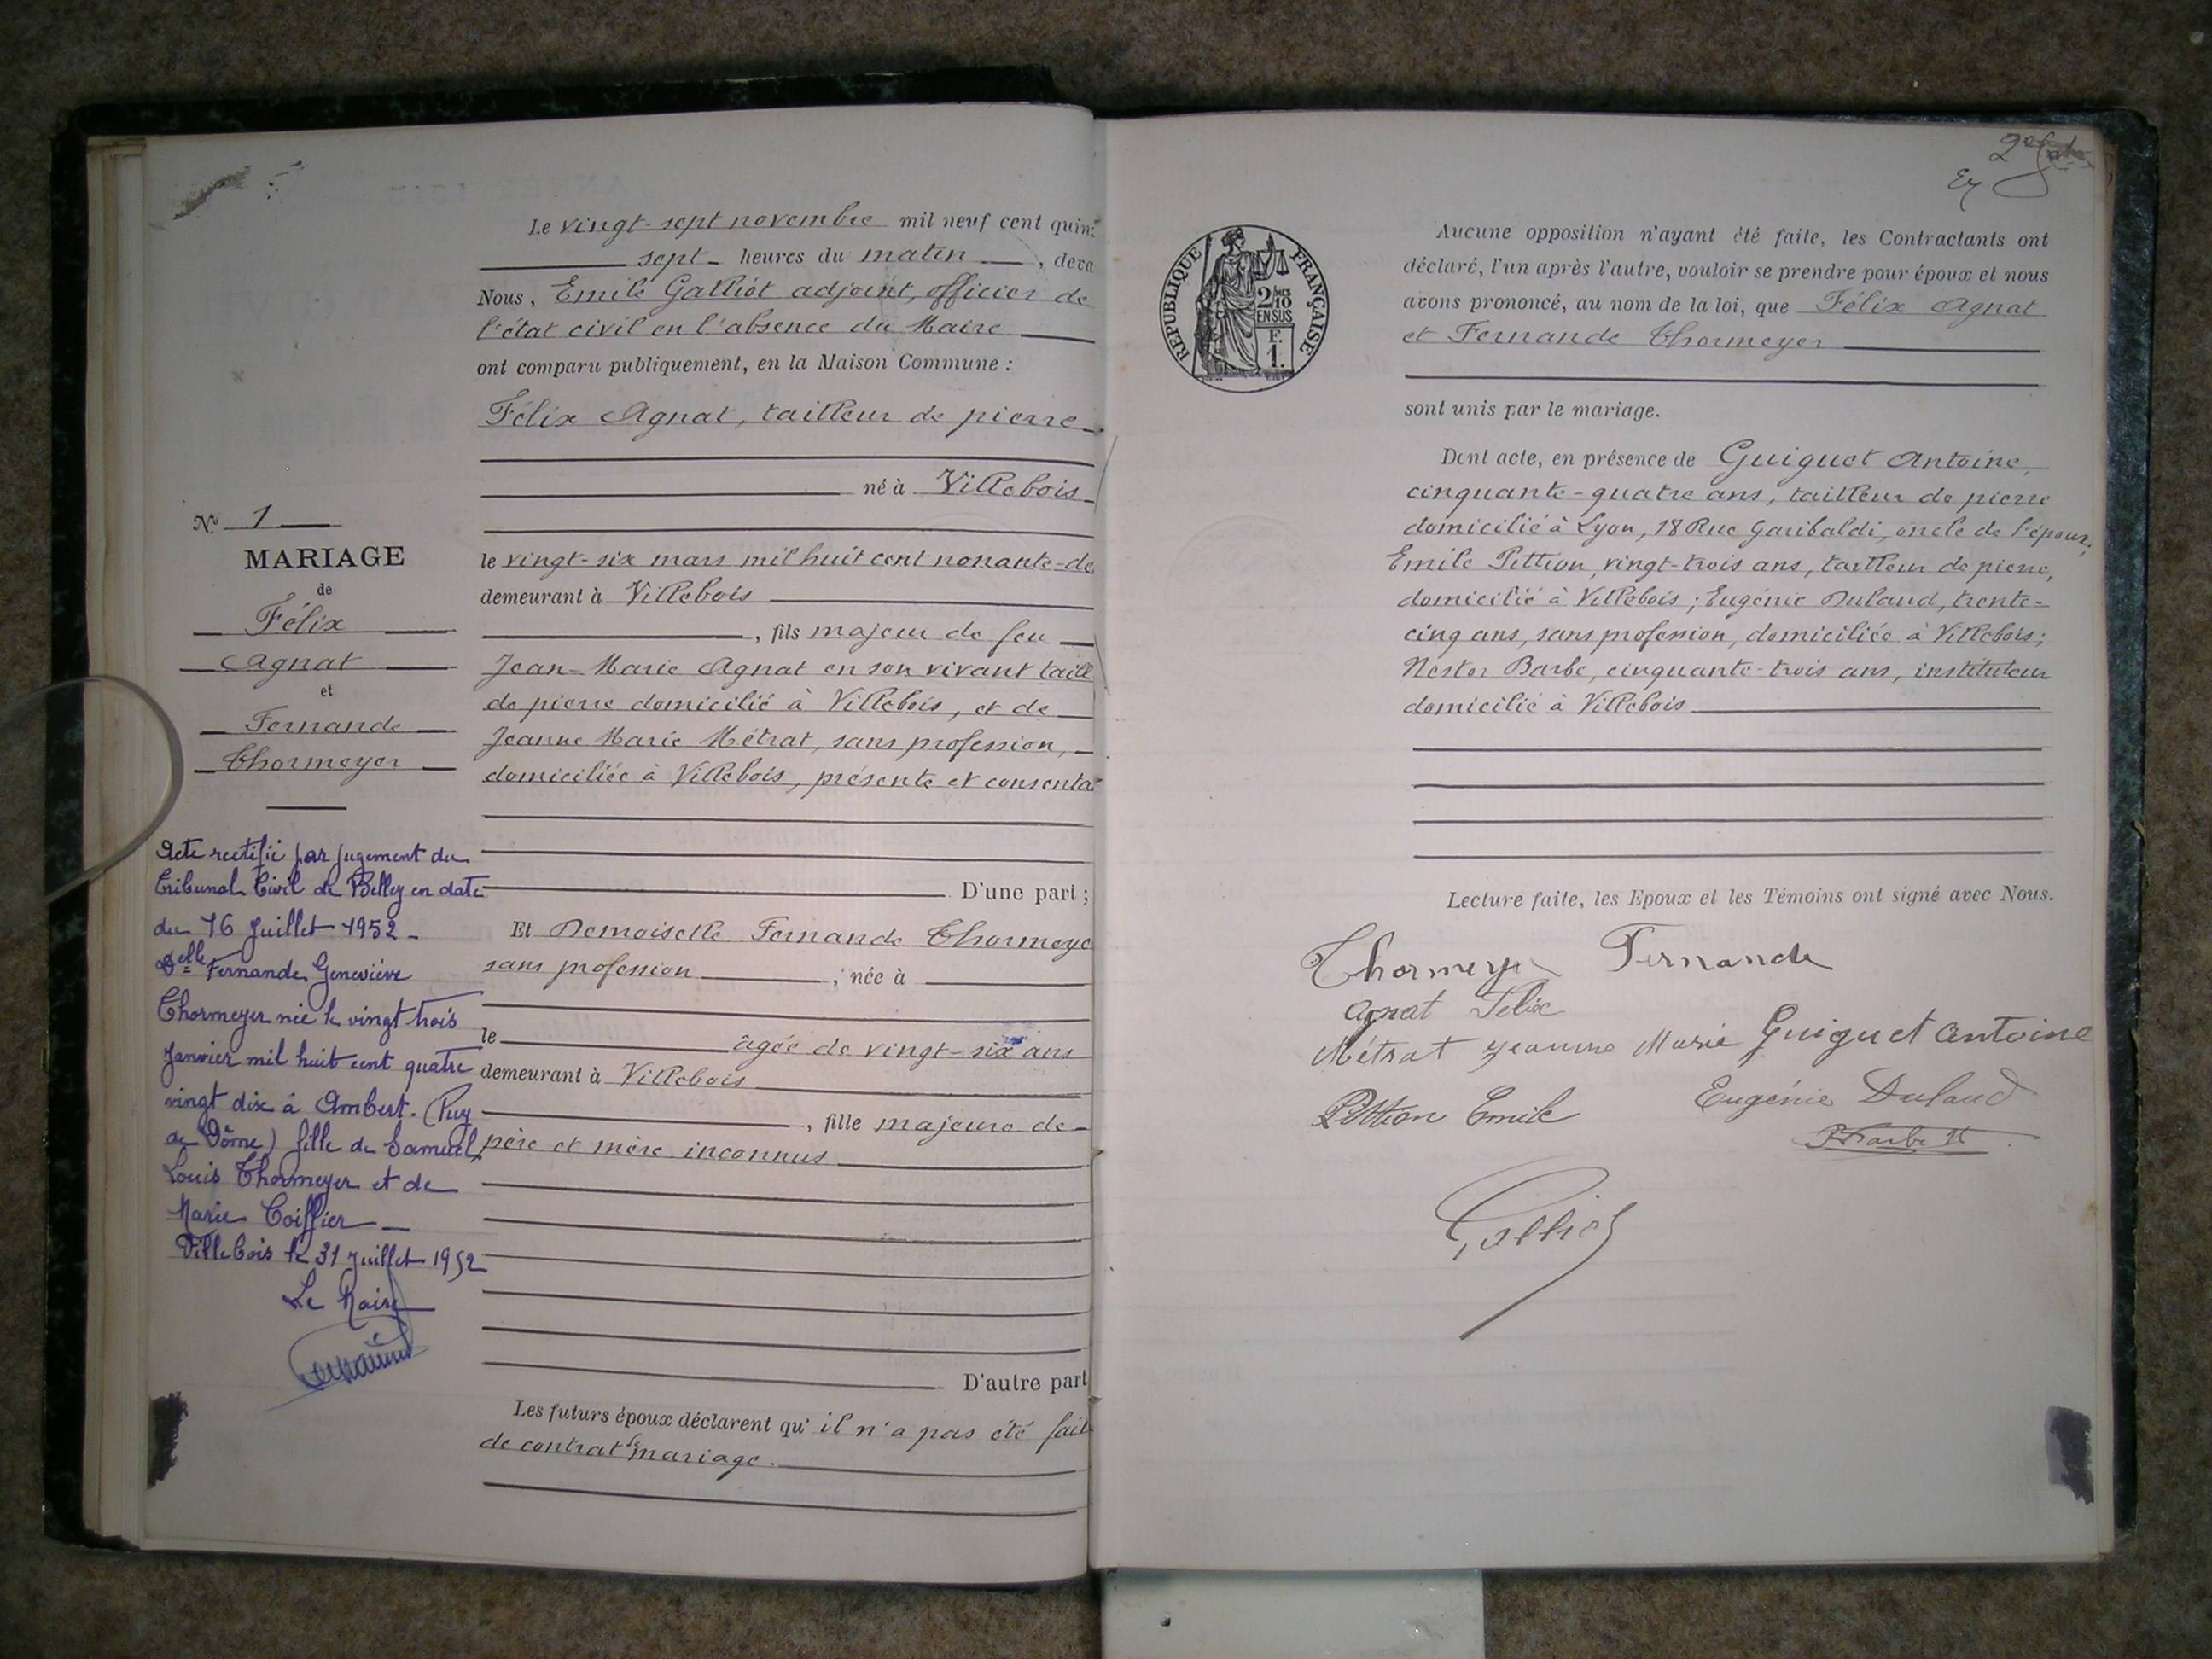 Le vingt-sept novembre mil neuf cent quin
sept heures du matin , deva
Nous, Emile Galliot adjoint, officier de
l'état civil en l'absence du Maire
ont comparu publiquement, en la Maison Commune :
Félix Agnat, tailleur de pierre
né à Villebois
le vingt-six mars mil huit cent nonante-de
demeurant à Villebois
, fils majeur de feu
Jean-Marie Agnat en son vivant taill
de pierre domicilié à Villebois, et de
Jeanne Marie Métrat, sans profession,
domiciliée à Villebois, présente et consenta
D'une part ;
Et Demoiselle Fernande Thormeye
sans profession ; née à
le âgée de vingt-six ans
demeurant à Villebois
, fille majeure de
père et mère inconnus
D'autre part
Les futurs époux déclarent qu'il n'a pas été fait
de contrat de mariage.
N° 1
MARIAGE
de
Félix
Agnat
et
Fernande
Thormeyer
Acte rectifié par jugement du
Tribunal Civil de Belley en date
du 16 Juillet 1952 -
Delle Fernande Geneviève
Thormeyer née le vingt trois
Janvier mil huit cent quatre
vingt dix à Ambert. (Puy
de Dôme) fille de Samuel,
Louis Thormeyer et de
Marie Coiffier
Villebois le 31 Juillet 1952
Le Maire
2e
RÉPUBLIQUE FRANÇAISE
2/10
EN SUS
F.
1.
Aucune opposition n'ayant été faite, les Contractants ont
déclaré, l'un après l'autre, vouloir se prendre pour époux et nous
avons prononcé, au nom de la loi, que Félix Agnat
et Fernande Thormeyer
sont unis par le mariage.
Dont acte, en présence de Guiguet Antoine,
cinquante-quatre ans, tailleur de pierre
domicilié à Lyon, 18 Rue Garibaldi, oncle de l'époux;
Emile Pittion, vingt-trois ans, tailleur de pierre,
domicilié à Villebois; Eugénie Dulaud, trente-
cinq ans, sans profession, domiciliée à Villebois;
Nestor Barbe, cinquante-trois ans, instituteur
domicilié à Villebois
Lecture faite, les Epoux et les Témoins ont signé avec Nous.
Thormeyer Fernande
Agnat Félix
Métrat Jeanne Marie Guiguet Antoine
Pittion Emile Eugénie Dulaud
Barbe N
Galliot